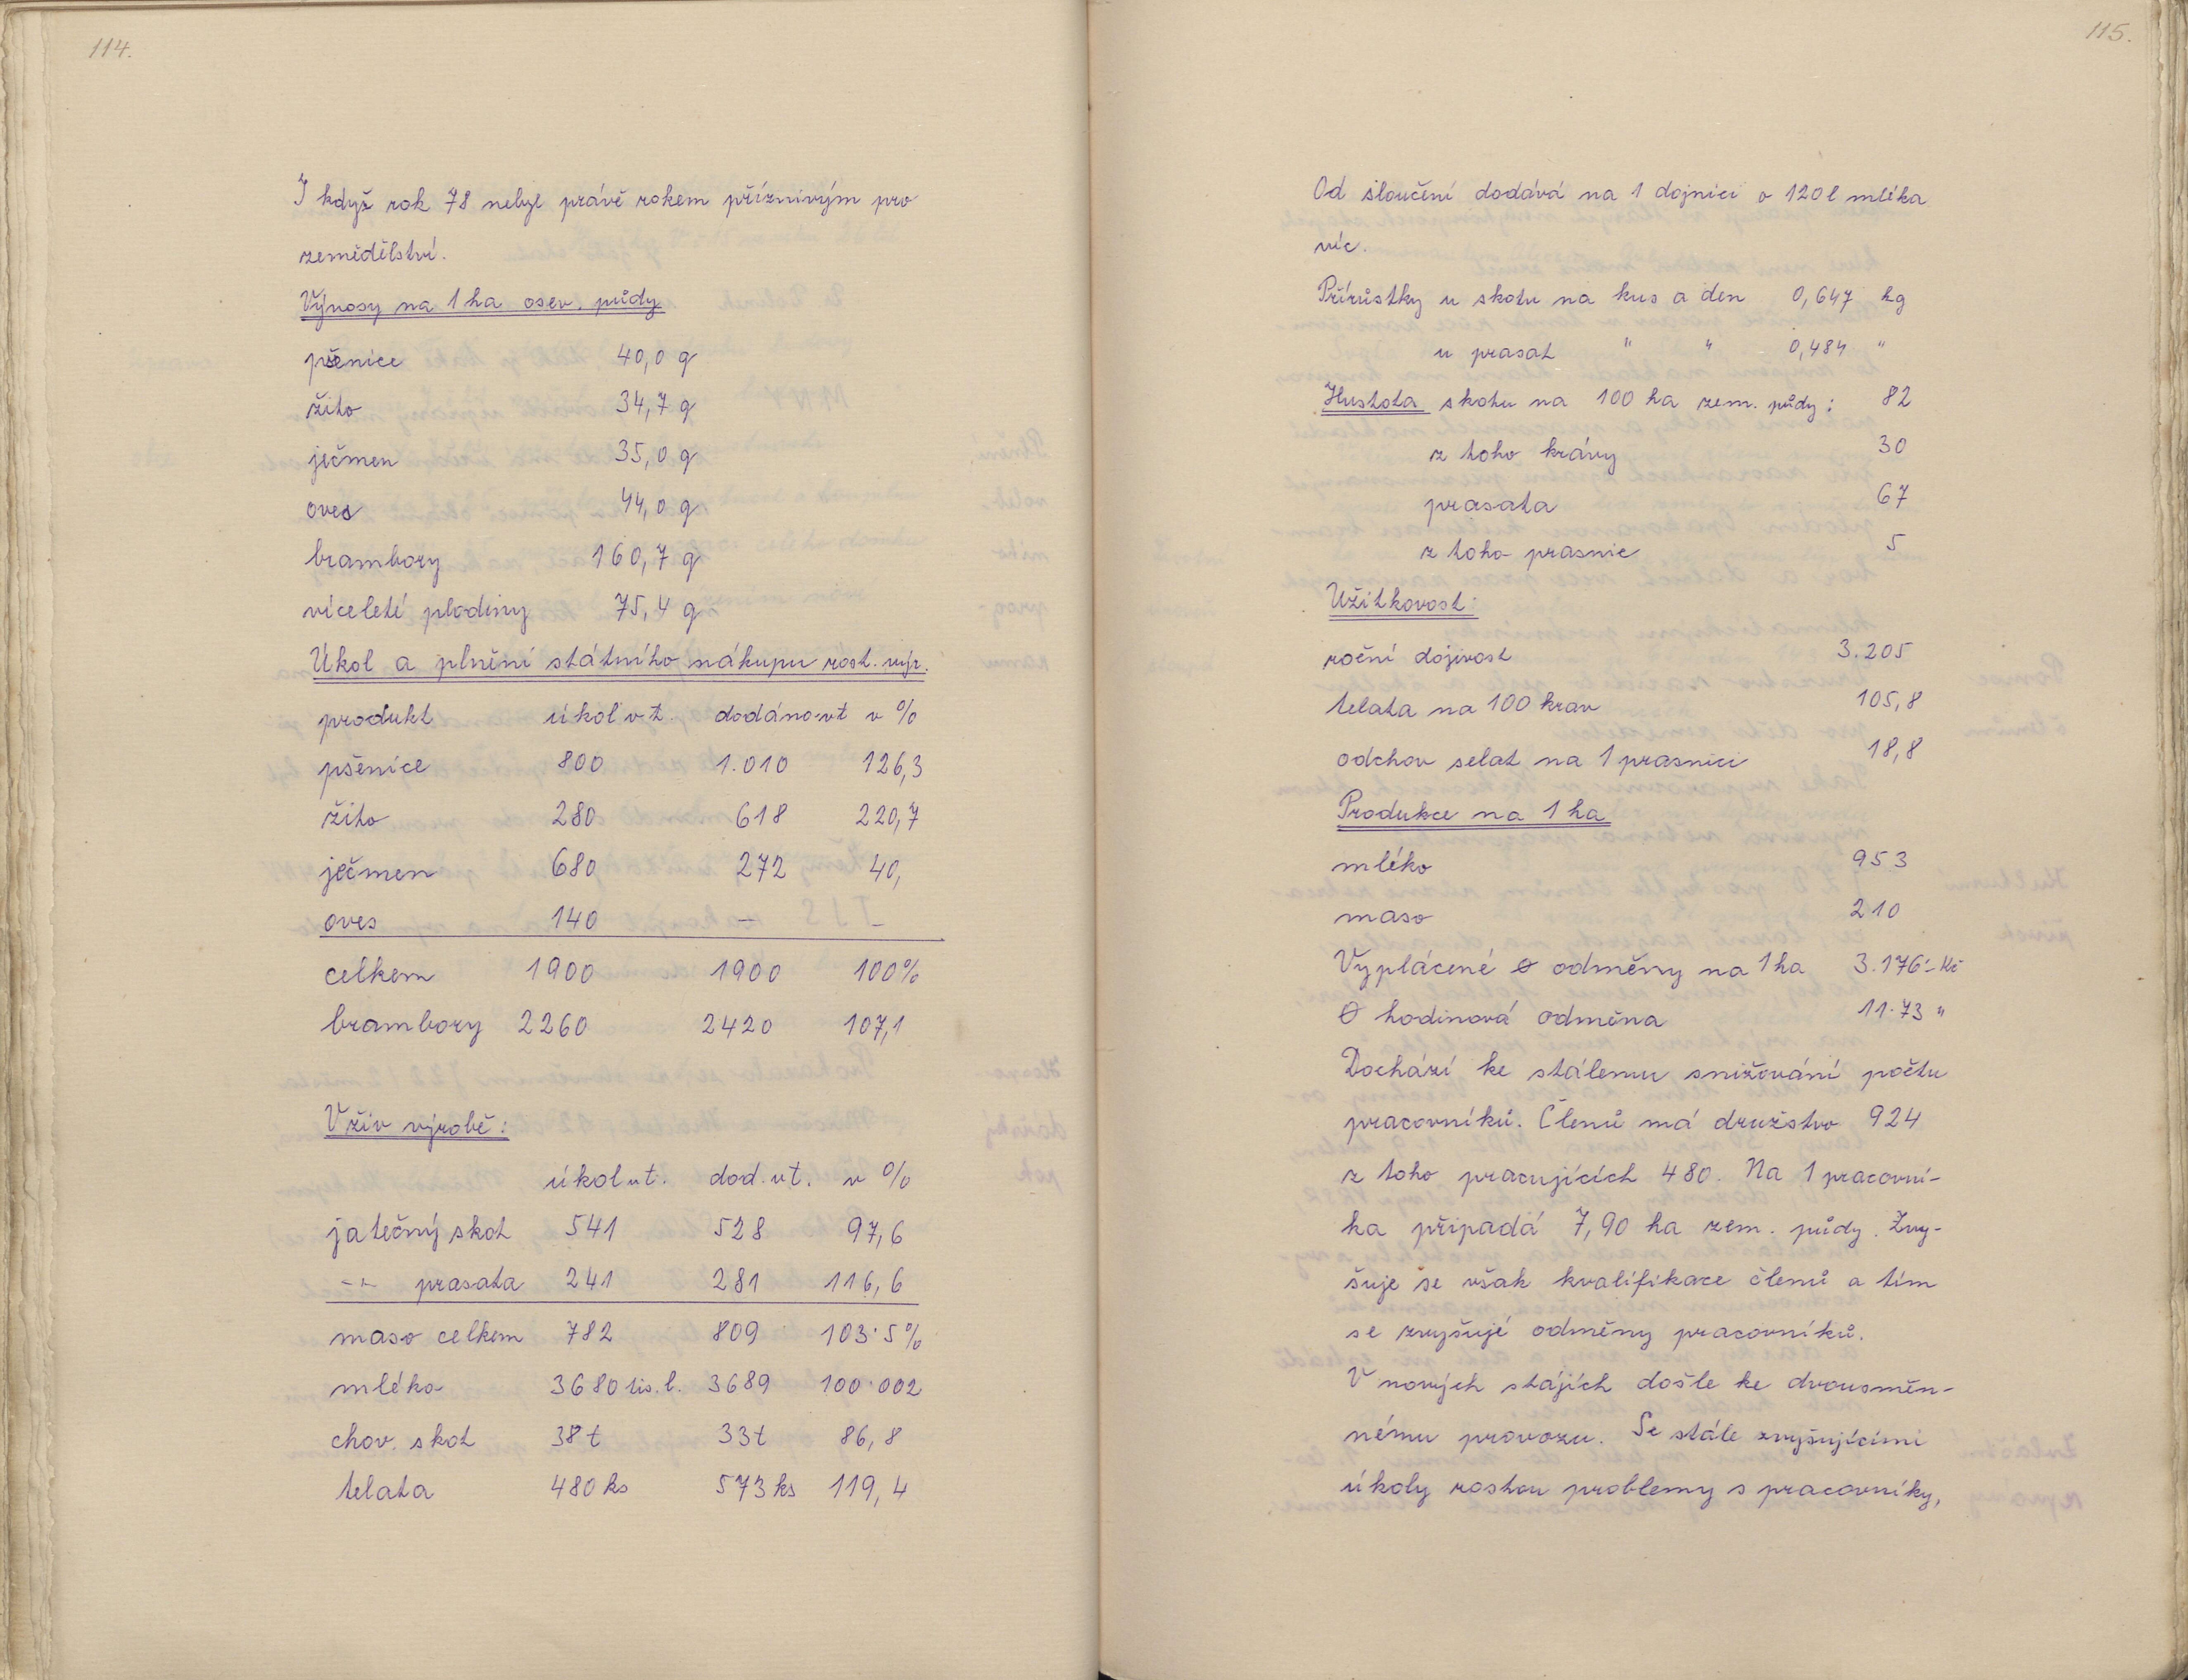 114.
I když rok 78 nebyl právě rokem příznivým pro
zemědělství.
Výnosy na 1 ha osev. půdy
pšenice 40,0 q
žito 34,7 q
ječmen 35,0 q
oves 44,0 q
brambory 160,7 q
víceleté plodiny 75,4 q
Úkol a plnění státního nákupu rost. výr.
produkt úkol v t. dodáno v t v %
pšenice 800 1.010 126,3
žito 280 618 220,7
ječmen 680 272 40,
oves 140 — –
celkem 1900 1900 100%
brambory 2260 2420 107,1
V živ výrobě:
úkol v t. dod. v t. v %
jatečný skot 541 528 97,6
-"- prasata 241 281 116,6
maso celkem 782 809 103·5%
mléko 3680 tis. l. 3689 100·002
chov. skot 38 t 33 t 86,8
telata 480 ks 573 ks 119,4
115.
Od sloučení dodává na 1 dojnici o 120 l mléka
víc.
Přírůstky u skotu na kus a den 0,647 kg
u prasat " " 0,484 "
Hustota skotu na 100 ha zem. půdy: 82
z toho krávy 30
prasata 67
z toho prasnic 5
Užitkovost:
roční dojivost 3.205
telata na 100 krav 105,8
odchov selat na 1 prasnici 18,8
Produkce na 1 ha
mléko 953
maso 210
Vyplácené ∅ odměny na 1 ha 3.176,- Kč
∅ hodinová odměna 11.73 "
Dochází ke stálemu snižování počtu
pracovníků. Členů má družstvo 924
z toho pracujících 480. Na 1 pracovní-
ka připadá 7,90 ha zem. půdy. Zvy-
šuje se však kvalifikace členů a tím
se zvyšují odměny pracovníků.
V nových stájích došlo ke dvousměn-
nému provozu. Se stále zvyšujícími
úkoly rostou problemy s pracovníky,